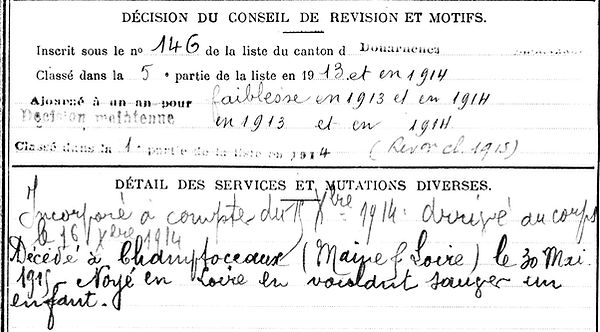 DÉCISION DU CONSEIL DE REVISION ET MOTIFS.
Inscrit sous le nº 146 de la liste du canton d Douarnenez
Classé dans la 5e partie de la liste en 1913 et en 1914
Ajourné à un an pour faiblesse en 1913 et en 1914
Décision maintenue en 1913 et en 1914
Classé dans la 1e partie de la liste en 1914 (Rév on cl. 1915)
DÉTAIL DES SERVICES ET MUTATIONS DIVERSES.
Incorporé à compter du Xbre 1914. arrivé au corps
le 16 Xbre 1914
Décédé à Champtoceaux (Maine & Loire) le 30 Mai
1915. Noyé en Loire en voulant sauver un
enfant.